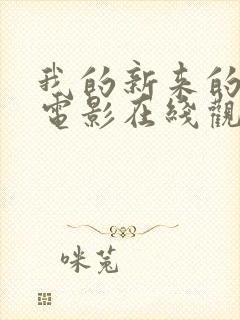 我的新来的
電影在綫觀
咪兔